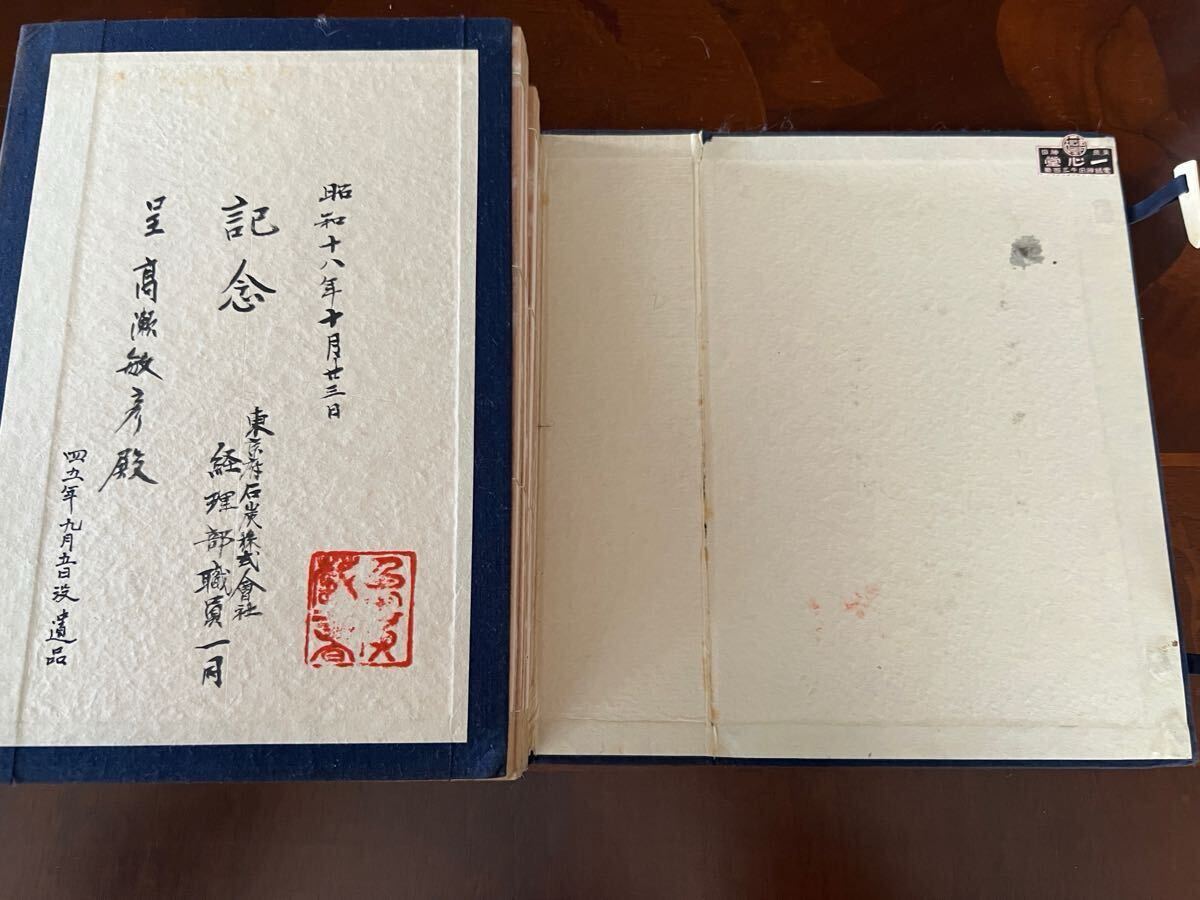 一心堂
昭和十八年十月廿三日
記念
東京府石炭株式會社
経理部職員一同
呈 髙瀬敏彦殿
四五年九月五日没 遺品